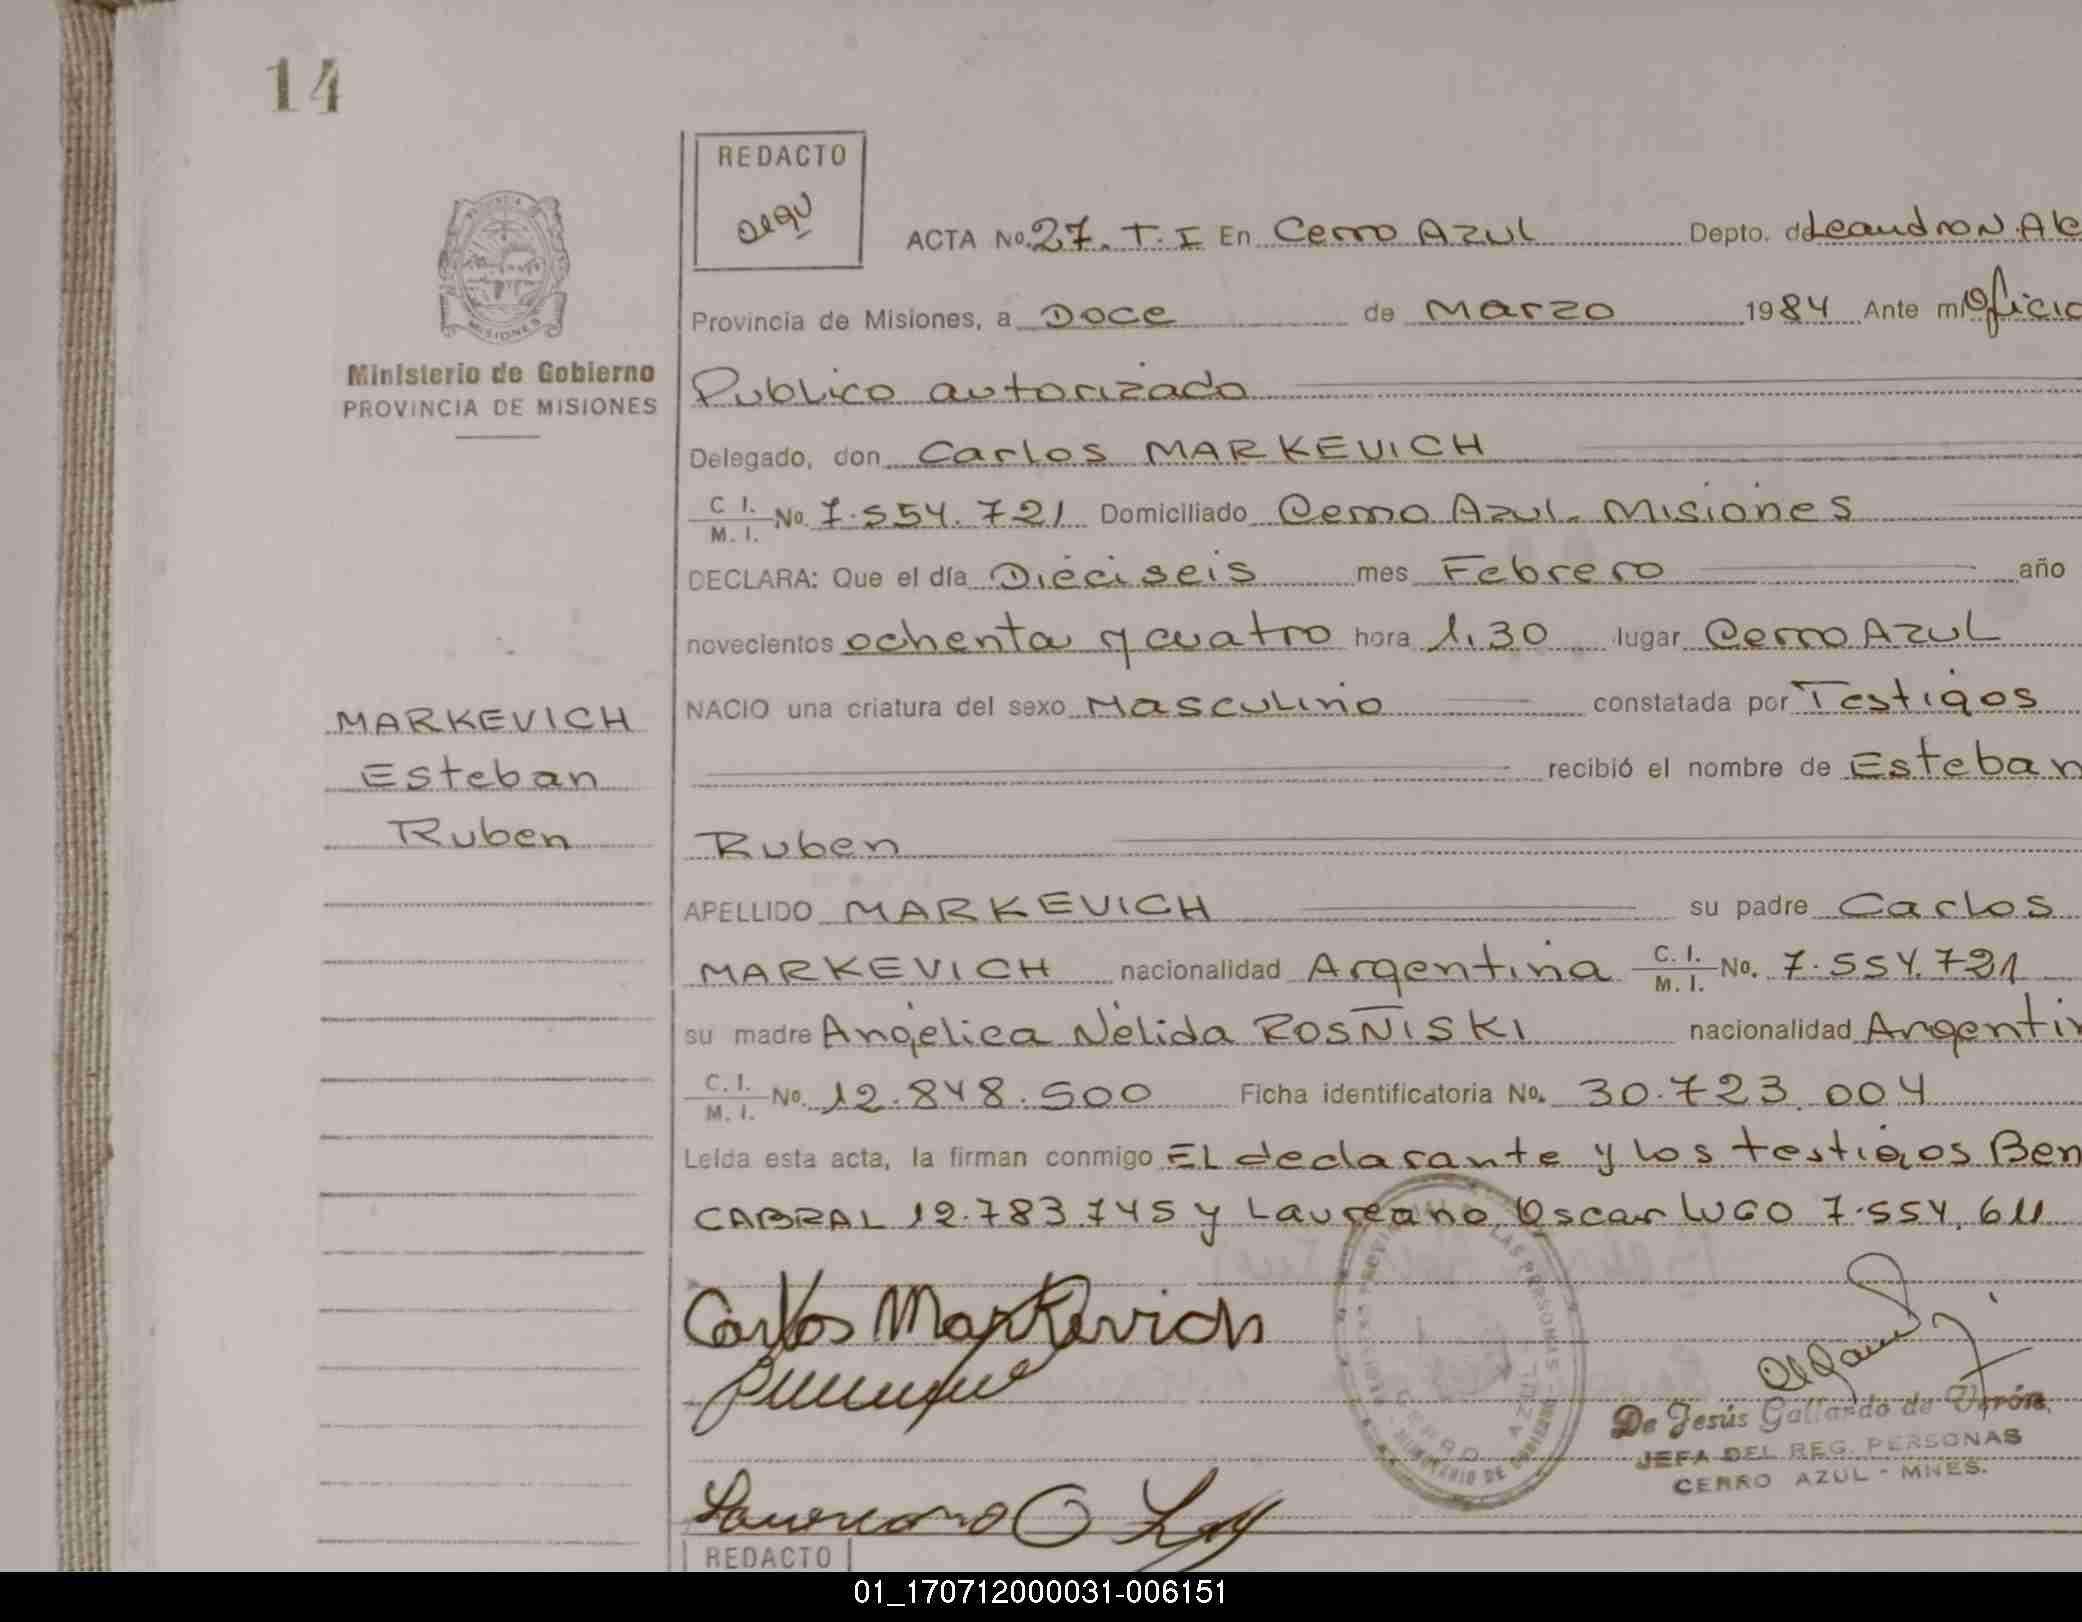 14
REDACTO
ACTA No. 27. T. I En Cerro AZUL Depto. de Leandro N. Al
Provincia de Misiones, a Doce de Marzo 1984 Ante mi Oficia
PROVINCIA DE MISIONES
Ministerio de Gobierno
PROVINCIA DE MISIONES
Publico autorizado
Delegado, don Carlos MARKEVICH
C. I. / M. I. No. 7.554.721 Domiciliado Cerro Azul. Misiones
DECLARA: Que el día Dieciseis mes Febrero año
novecientos ochenta y cuatro hora 1,30 lugar Cerro AZUL
NACIO una criatura del sexo Masculino constatada por Testigos
recibió el nombre de Esteban
Ruben
MARKEVICH
Esteban
Ruben
APELLIDO MARKEVICH su padre Carlos
MARKEVICH nacionalidad Argentina C. I. / M. I. No. 7.554.721
su madre Angélica Nélida ROSÑISKI nacionalidad Argentin
C. I. / M. I. No. 12.848.500 Ficha identificatoria No. 30.723.004
Leida esta acta, la firman conmigo EL declarante y los testigos Ben
CABRAL 12.783.745 y Laureano Oscar LUGO 7.554.611
Carlos Markevich
De Jesús Gallardo de Verón
JEFA DEL REG. PERSONAS
CERRO AZUL - MNES.
Laureano O
REDACTO
01_170712000031-006151